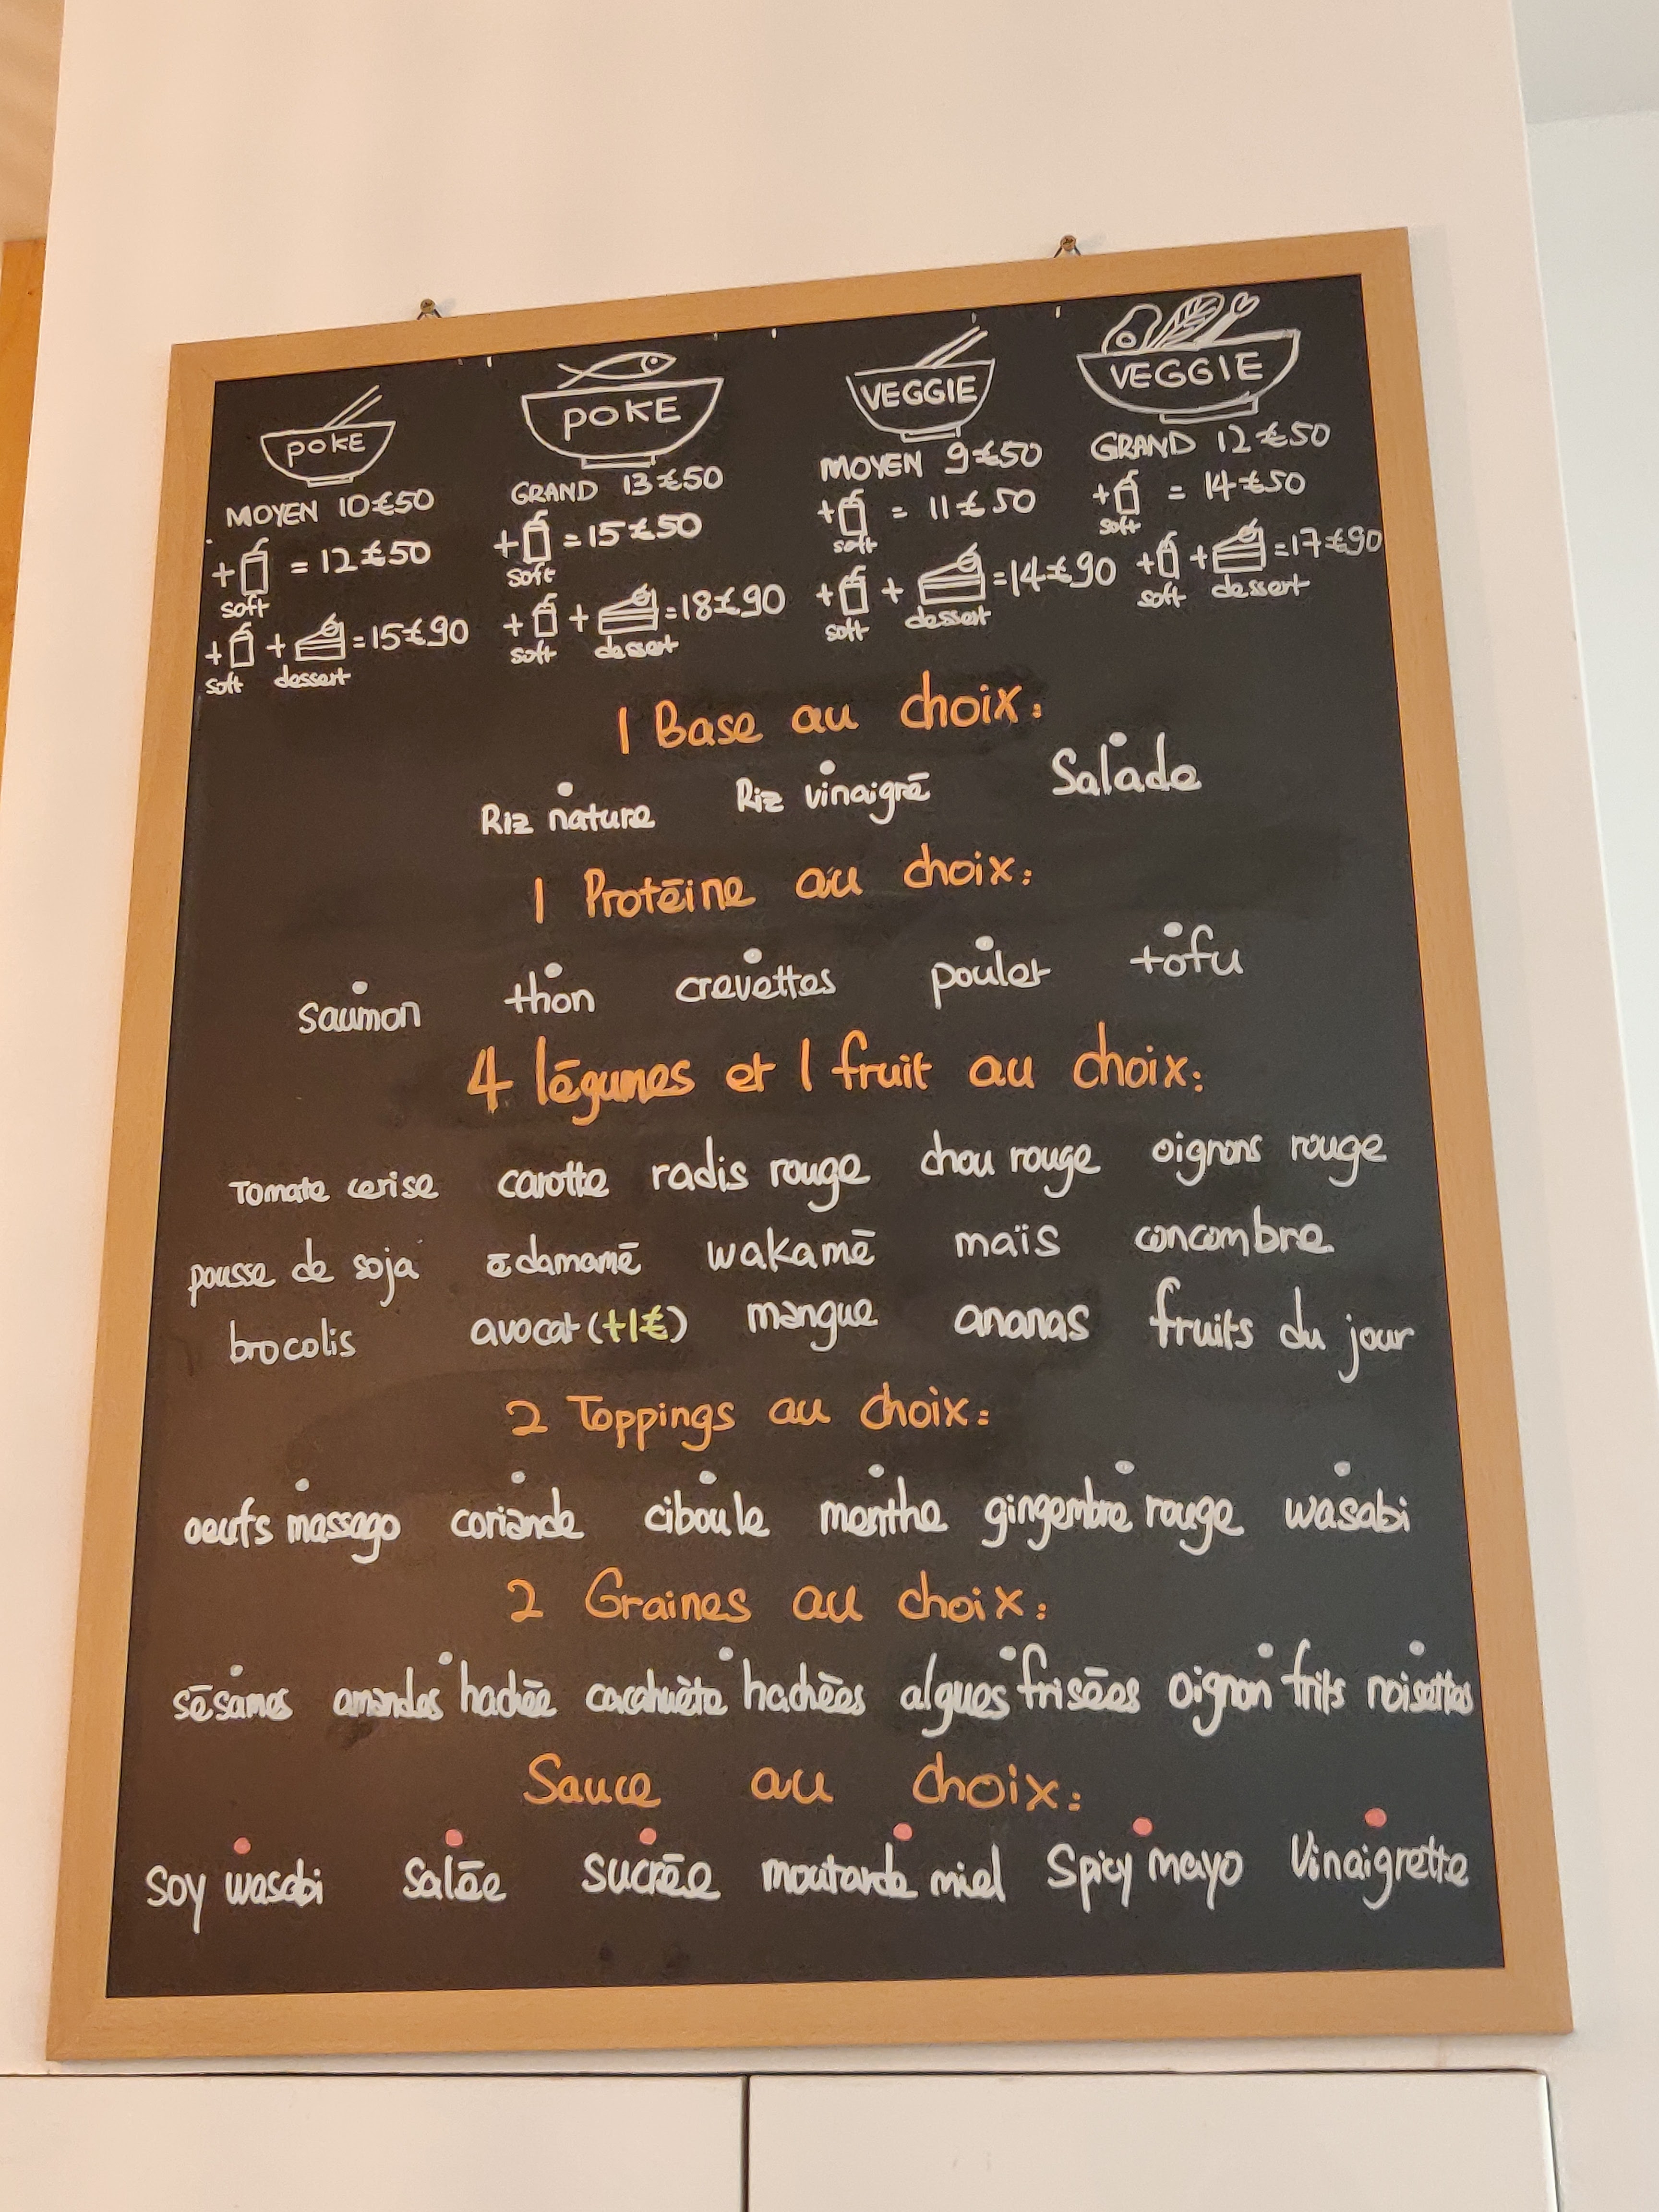 POKE
MOYEN 10€50
+ = 12€50
soft
+ + =15€90
soft dessert
POKE
GRAND 13€50
+ =15€50
soft
+ + =18€90
soft dessert
VEGGIE
MOYEN 9€50
+ = 11€50
soft
+ + =14€90
soft dessert
VEGGIE
GRAND 12€50
+ = 14€50
soft
+ + =17€90
soft dessert
1 Base au choix:
Riz nature Riz vinaigré Salade
1 Protéine au choix:
saumon thon crevettes poulet tofu
4 légumes et 1 fruit au choix:
Tomate cerise carotte radis rouge chou rouge oignons rouge
pousse de soja édamamé wakamé maïs concombre
brocolis avocat (+1€) mangue ananas fruits du jour
2 Toppings au choix:
oeufs massago coriande ciboule menthe gingembre rouge wasabi
2 Graines au choix:
sésames amandes hachée cacahuète hachées algues frisées oignon frits noisettes
Sauce au choix:
Soy wasabi Salée sucrée moutarde miel Spicy mayo Vinaigrette